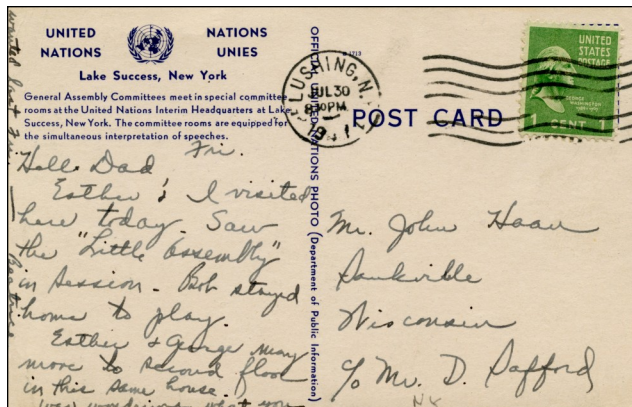 UNITED NATIONS
NATIONS UNIES
Lake Success, New York
General Assembly Committees meet in special committee
rooms at the United Nations Interim Headquarters at Lake
Success, New York. The committee rooms are equipped for
the simultaneous interpretation of speeches.
Fri.
Hello Dad
Esther & I visited
here today. Saw
the "Little Assembly"
in session. Bob stayed
home to play.
Esther & George may
move to second floor
in this same house.
was wondering what you
OFFICIAL UNITED NATIONS PHOTO (Department of Public Information)
FLUSHING, N.Y.
JUL 30
PM
POST CARD
UNITED
STATES
POSTAGE
GEORGE
WASHINGTON
1 CENT 1
Mr. John Haan
Saukville
Wisconsin
c/o Mr. D. Safford